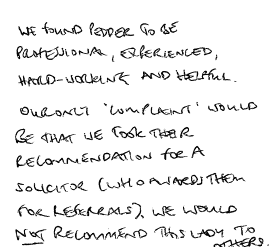 WE FOUND PEDDER TO BE
PROFESSIONAL, EXPERIENCED,
HARD-WORKING AND HELPFUL.
OUR ONLY 'COMPLAINT' WOULD
BE THAT WE TOOK THEIR
RECOMMENDATION FOR A
SOLICITOR (WHO AWARDS THEM
FOR REFERRALS), WE WOULD
NOT RECOMMEND THIS LADY TO
OTHERS.